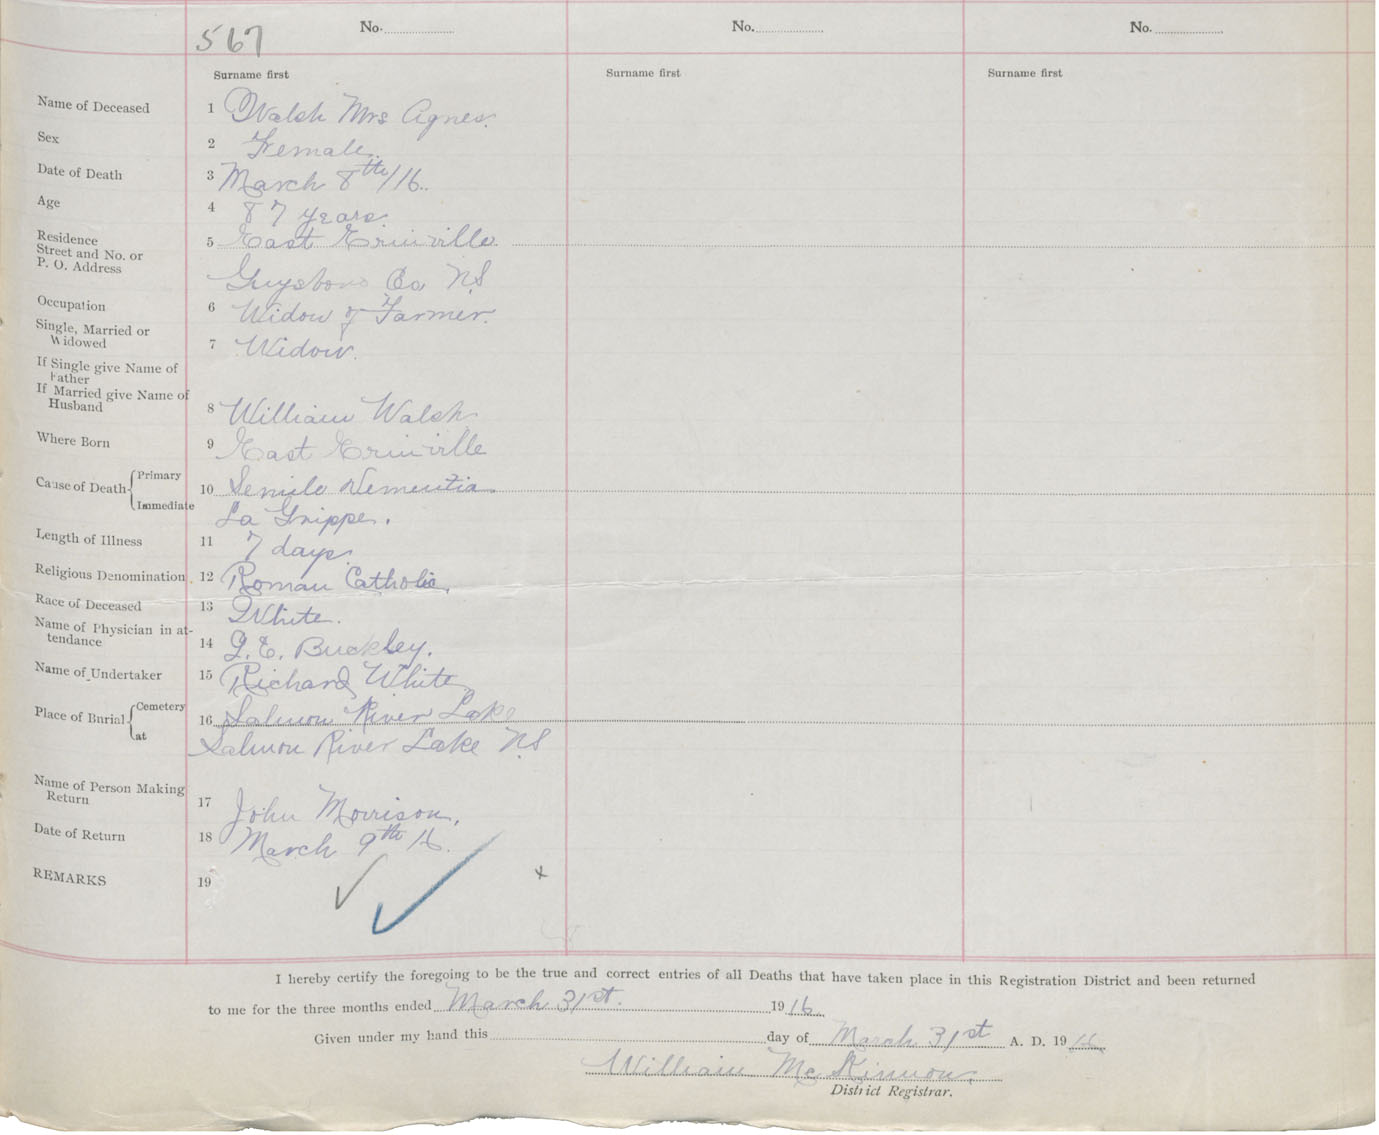 567 No. No. No.
Surname first Surname first Surname first
Name of Deceased 1 Walsh Mrs Agnes.
Sex 2 Female.
Date of Death 3 March 8th/16.
Age 4 87 years
Residence 5 East Erinville.
Street and No. or
P. O. Address Guysboro Co NS
Occupation 6 Widow of Farmer.
Single, Married or
Widowed 7 Widow.
If Single give Name of
Father
If Married give Name of
Husband 8 William Walsh
Where Born 9 East Erinville
Cause of Death Primary 10 Senile Dementia
Immediate La Grippe.
Length of Illness 11 7 days.
Religious Denomination 12 Roman Catholic.
Race of Deceased 13 White.
Name of Physician in at-
tendance 14 G. E. Buckley.
Name of Undertaker 15 Richard White
Place of Burial Cemetery 16 Salmon River Lake
at Salmon River Lake NS
Name of Person Making
Return 17 John Morrison.
Date of Return 18 March 9th 16.
REMARKS 19 x
I hereby certify the foregoing to be the true and correct entries of all Deaths that have taken place in this Registration District and been returned
to me for the three months ended March 31st. 1916
Given under my hand this day of March 31st A. D. 1916
William McKinnon.
District Registrar.